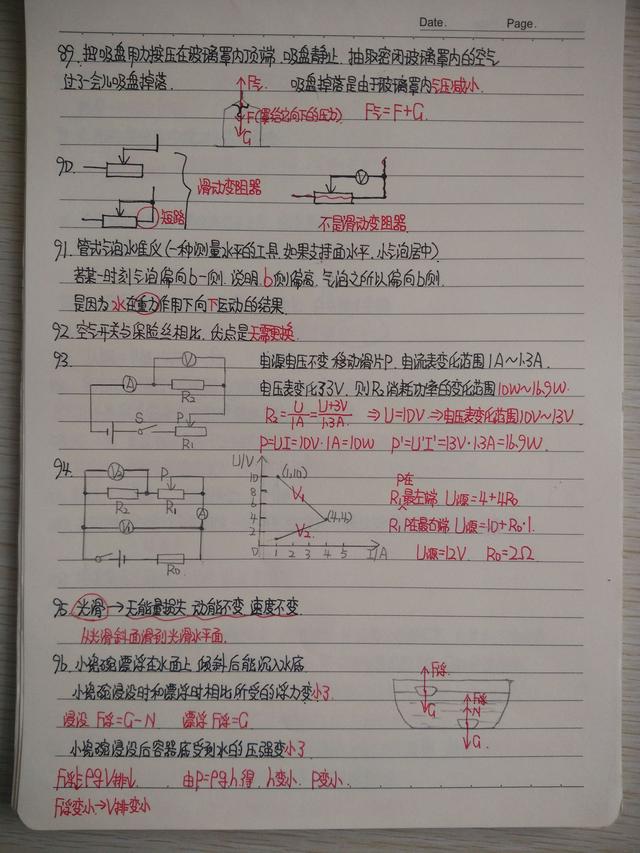 Date. Page.
89. 把吸盘用力按压在玻璃罩内顶端, 吸盘静止, 抽取密闭玻璃罩内的空气
过了一会儿吸盘掉落. 吸盘掉落是由于玻璃罩内气压减小.
F气
F(罩给它向下的压力) F气=F+G.
G
90.
滑动变阻器
V
短路
不是滑动变阻器
91. 管式气泡水准仪(一种测量水平的工具, 如果支持面水平, 小气泡居中)
若某一时刻气泡偏向b一侧, 说明b侧偏高, 气泡之所以偏向b侧.
是因为水在重力作用下向下运动的结果.
92. 空气开关与保险丝相比, 优点是无需更换.
93. 电源电压不变 移动滑片P, 电流表变化范围1A~1.3A.
V
A R2
S P
R1
电压表变化了3V, 则R2消耗功率的变化范围10W~16.9W.
R2=U/1A=U+3V/1.3A. ⇒U=10V⇒电压表变化范围10V~13V
P=UI=10V·1A=10W P'=U'I'=13V·1.3A=16.9W.
94. U/V
V2 P
R2 R1 A
V1
R0
10 (1,10)
8 V1
6
4 (4,4)
2 V2
0 1 2 3 4 5 I/A
P在
R1最左端 U源=4+4R0
R1P在最右端 U源=10+R0·1.
U源=12V. R0=2Ω
95. 光滑→无能量损失 动能不变 速度不变.
从光滑斜面滑到光滑水平面.
96. 小瓷碗漂浮在水面上, 倾斜后能沉入水底
小瓷碗浸没时和漂浮时相比所受的浮力变小了
浸没 F浮=G-N 漂浮F浮=G.
小瓷碗浸没后容器底受到水的压强变小了
F浮=ρgV排↓. 由P=ρgh得, h变小. P变小.
F浮变小→V排变小
F浮
G
F浮
N
G